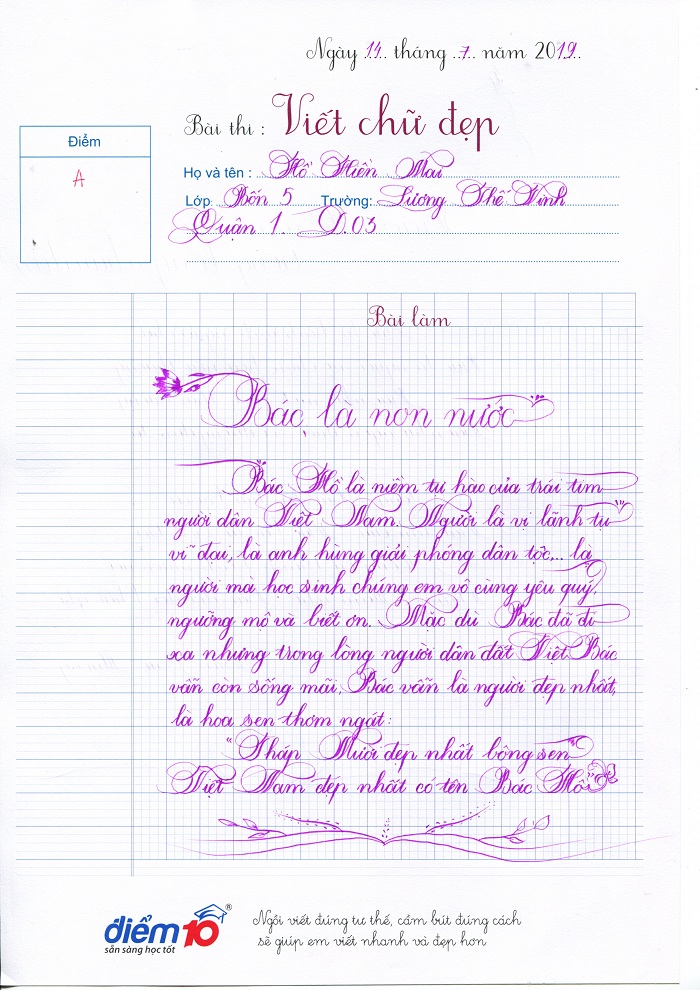 Ngày 14 tháng 7 năm 2019
Bài thi : Viết chữ đẹp
Điểm
A
Họ và tên : Hồ Hiền Mai
Lớp Bốn 5 Trường: Lương Thế Vinh
Quận 1. D.03
Bài làm
Bác là non nước
Bác Hồ là niềm tự hào của trái tim
người dân Việt Nam. Người là vị lãnh tụ
vĩ đại, là anh hùng giải phóng dân tộc,.. là
người mà học sinh chúng em vô cùng yêu quý,
ngưỡng mộ và biết ơn. Mặc dù Bác đã đi
xa nhưng trong lòng người dân đất Việt Bác
vẫn còn sống mãi, Bác vẫn là người đẹp nhất,
là hoa sen thơm ngát:
"Tháp Mười đẹp nhất bông sen
Việt Nam đẹp nhất có tên Bác Hồ"
điểm10®
sẵn sàng học tốt
Ngồi viết đúng tư thế, cầm bút đúng cách
sẽ giúp em viết nhanh và đẹp hơn